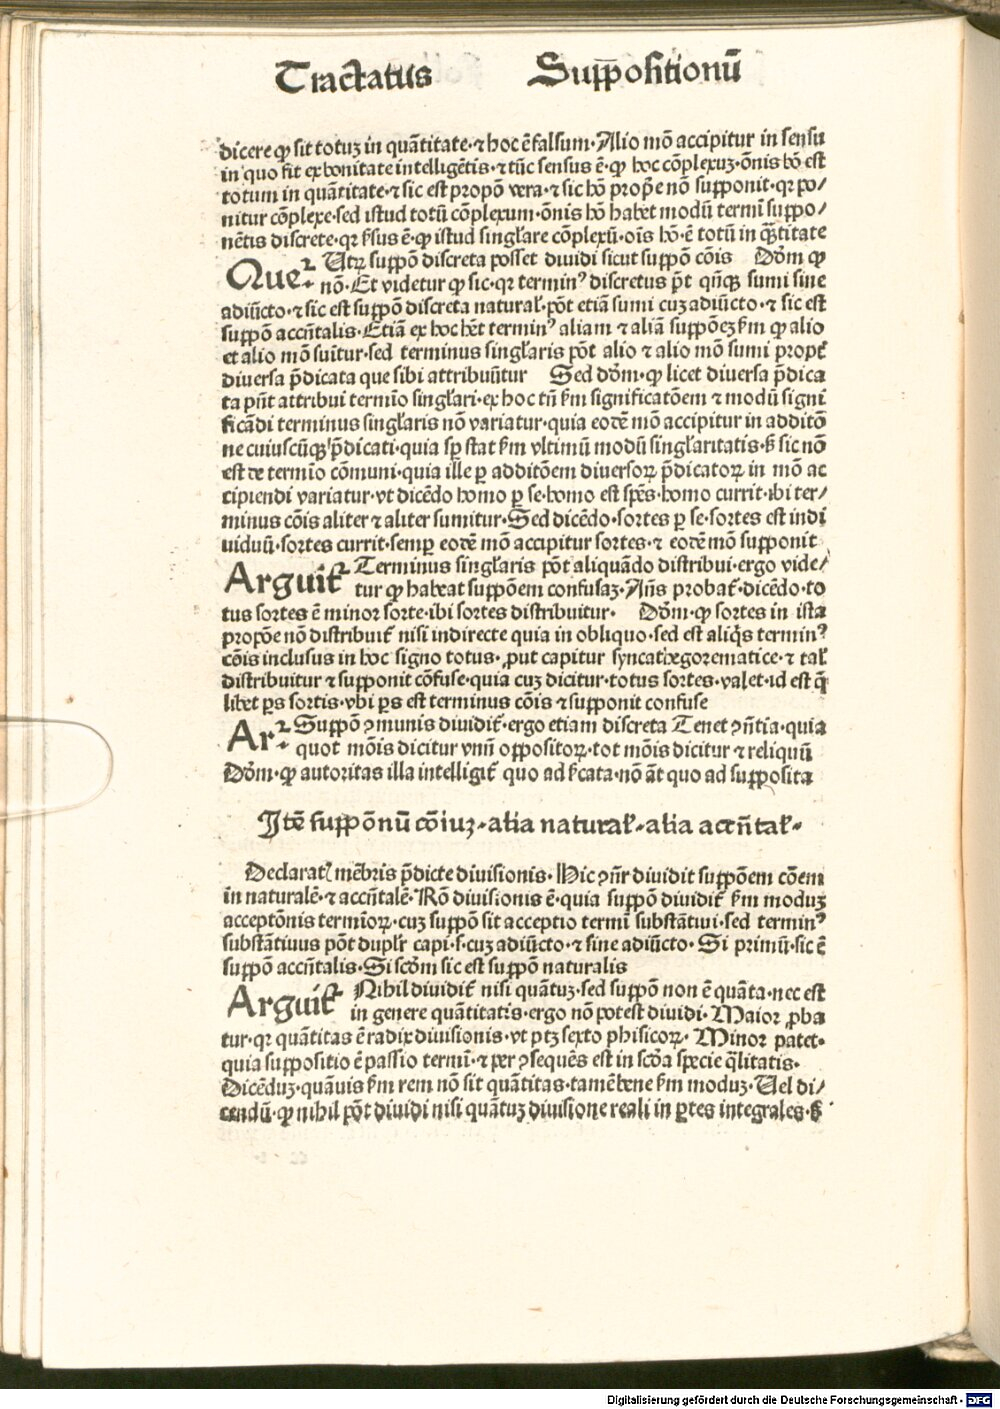 Tractatus Suppositionū
dicere ꝙ sit totuꝫ in quātitate·⁊ hoc ē falsum·Alio mō accipitur in sensu
in quo fit ex bonitate intelligētis·⁊ tūc sensus ē·ꝙ hoc cōplexuꝫ·ōnis hō est
totum in quātitate·⁊ sic est propō vera·⁊ sic hō prop̄e nō supponit·qꝛ po/
nitur cōplexe·sed istud totū cōplexum·ōnis hō habet modū termī suppo/
nētis discrete·qꝛ ẜsus ē·ꝙ istud singl̄are cōplexū·oīs hō·ē totū in q̄ꝫtitate
Que² Utꝝ suppō discreta posset diuidi sicut suppō cōis Dōm ꝙ
nō·Et videtur ꝙ sic·qꝛ terminꝰ discretus p̄t qn̄qꝫ sumi sine
adiūcto·⁊ sic est suppō discreta natural̄·pōt etiā sumi cuꝫ adiūcto·⁊ sic est
suppō accn̄talis·Etiā ex hoc hēt terminꝰ aliam ⁊ aliā suppōeꝫ ẜm ꝙ alio
et alio mō sumītur·sed terminus singl̄aris pōt alio ⁊ alio mō sumi propt̄
diuersa p̄dicata que sibi attribuūtur Sed dōm·ꝙ licet diuersa p̄dica
ta pn̄t attribui termīo singl̄ari·ex hoc tn̄ ẜm significatōem ⁊ modū signi
ficādi terminus singl̄aris nō variatur·quia eodē mō accipitur in additō
ne cuiuscūqꝫ p̄dicati·quia sꝑ stat ẜm vltimū modū singl̄aritatis·ẜ sic nō
est de termīo cōmuni·quia ille ꝑ additōem diuersoꝝ p̄dicatoꝝ in mō ac
cipiendi variatur·vt dicēdo homo ꝑ se·homo est spēs·homo currit·ibi ter/
minus cōis aliter ⁊ aliter sumitur·Sed dicēdo·sortes ꝑ se·sortes est indi
uiduū·sortes currit·semꝑ eodē mō accipitur sortes·⁊ eodē mō supponit
Arguit² Terminus singl̄aris pōt aliquādo distribui·ergo vide/
tur ꝙ habeat suppōem confusaꝫ·Añs probat̄·dicēdo·to
tus sortes ē minor sorte·ibi sortes distribuitur· Dōm·ꝙ sortes in ista
propōe nō distribuit̄ nisi indirecte quia in obliquo·sed est aliq̄s terminꝰ
cōis inclusus in hoc signo totus·ꝓut capitur syncathegorematice·⁊ tal̄
distribuitur ⁊ supponit cōfuse·quia cuꝫ dicitur·totus sortes·valet·id est q̄
libet ꝑs sortis·vbi ꝑs est terminus cōis ⁊ supponit confuse
Ar² Suppō ꝯmunis diuidit̄·ergo etiam discreta Tenet ꝯn̄tia·quia
quot mōis dicitur vnū oppositoꝝ·tot mōis dicitur ⁊ reliquū
Dōm·ꝙ autoritas illa intelligit̄ quo ad ẜcata·nō āt quo ad supposita
Itē suppōnū cōiuꝫ·alia natural̄·alia accn̄tal̄·
Declarat² mēbris p̄dicte diuisionis·Hic ꝯn̄r diuidit suppōem cōem
in naturalē·⁊ accn̄talē·Rō diuisionis ē·quia suppō diuidit̄ ẜm moduꝫ
acceptōnis termīoꝝ·cuꝫ suppō sit acceptio termī substātiui·sed terminꝰ
substātiuus pōt duplr̄ capi·s·cuꝫ adiūcto·⁊ sine adiūcto·Si primū·sic ē
suppō accn̄talis·Si scōm sic est suppō naturalis
Arguit² Nihil diuidit̄ nisi quātuꝫ·sed suppō non ē quāta·nec est
in genere quātitatis·ergo nō potest diuidi·Maior ꝓba
tur·qꝛ quātitas ē radix diuisionis·vt ptꝫ sexto phisicoꝝ·Minor patet·
quia suppositio ē passio termī·⁊ per ꝯsequēs est in scōa specie q̄litatis·
Dicēduꝫ·quāuis ẜm rem nō sit quātitas·tamē bene ẜm moduꝫ·Uel di/
cendū·ꝙ nihil pōt diuidi nisi quātuꝫ diuisione reali in ꝑtes integrales·ẜ
Digitalisierung gefördert durch die Deutsche Forschungsgemeinschaft - DFG